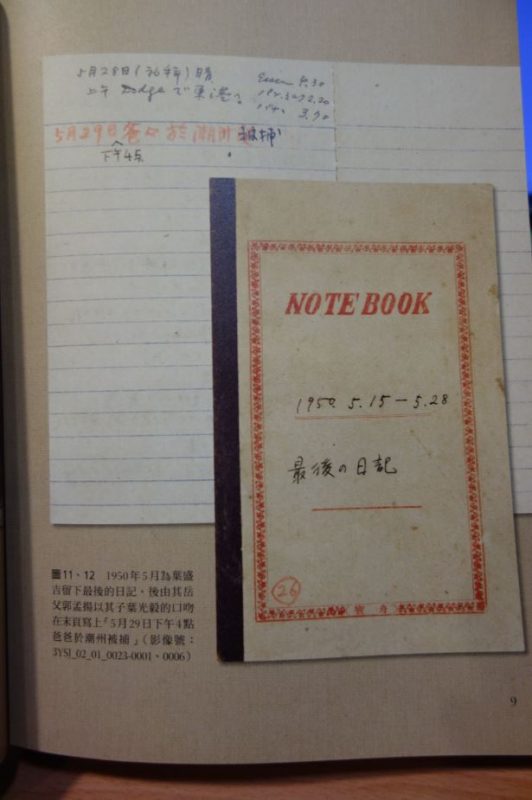 5月28日(
上午 Dodgeで東港へ
5月29日爸々於潮州被捕
下午4点
NOTE BOOK
1950. 5.15—5.28
最後の日記
26
圖11、12 1950年5月為葉盛
吉留下最後的日記,後由其岳
父郭孟揚以其子葉光毅的口吻
在末頁寫上「5月29日下午4點
爸爸於潮州被捕」(影像號:
3YSJ_02_01_0023-0001、0006)
9